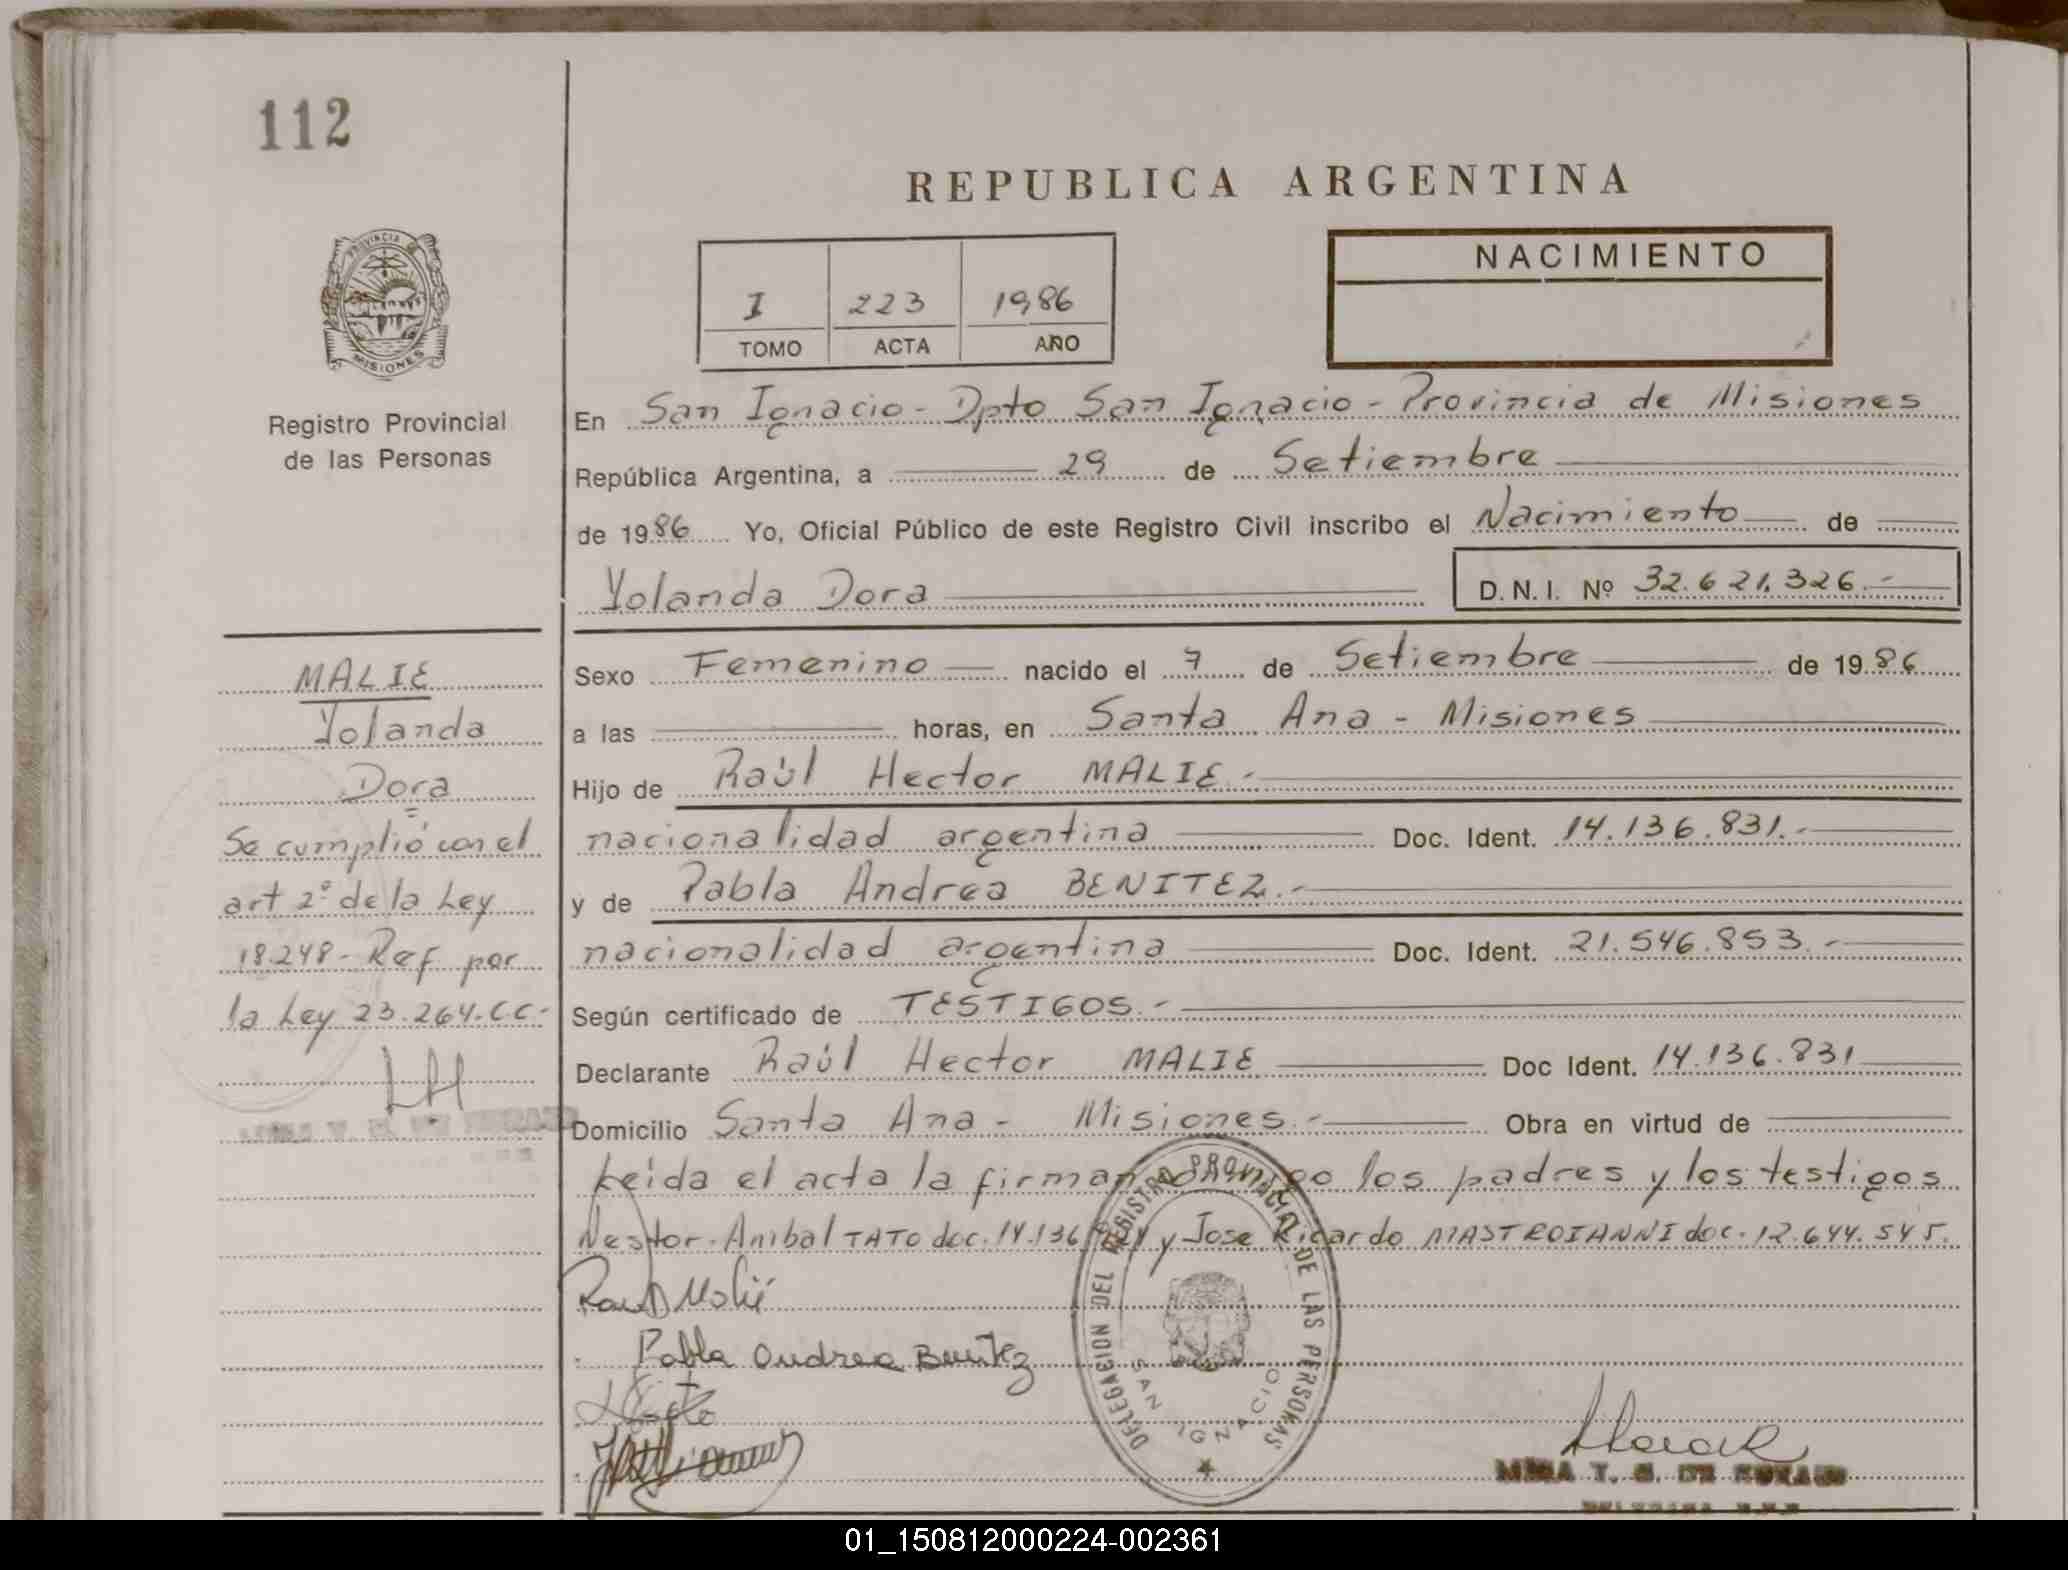 112
REPUBLICA ARGENTINA
NACIMIENTO
I 223 1986
TOMO ACTA AÑO
PROVINCIA DE MISIONES
Registro Provincial
de las Personas
En San Ignacio - Dpto San Ignacio - Provincia de Misiones
República Argentina, a 29 de Setiembre
de 1986 Yo, Oficial Público de este Registro Civil inscribo el Nacimiento de
Yolanda Dora D.N.I. Nº 32.621.326.-
MALIE
Yolanda
Dora
Se cumplió con el
art 2º de la Ley
18.248 - Ref por
la Ley 23.264.CC-
Sexo Femenino nacido el 7 de Setiembre de 1986
a las horas, en Santa Ana - Misiones
Hijo de Raúl Hector MALIE.-
nacionalidad argentina Doc. Ident. 14.136.831.-
y de Pabla Andrea BENITEZ.-
nacionalidad argentina Doc. Ident. 21.546.853.-
Según certificado de TESTIGOS.-
Declarante Raúl Hector MALIE Doc Ident. 14.136.831
Domicilio Santa Ana - Misiones.- Obra en virtud de
Leida el acta la firman los padres y los testigos
Nestor Anibal TATO doc. 14.136 y Jose Ricardo MASTROIANNI doc. 12.644.545.
Raul Malié
Pabla Andrea Benitez
DELEGACION DEL REGISTRO PROVINCIAL DE LAS PERSONAS
SAN IGNACIO
01_150812000224-002361